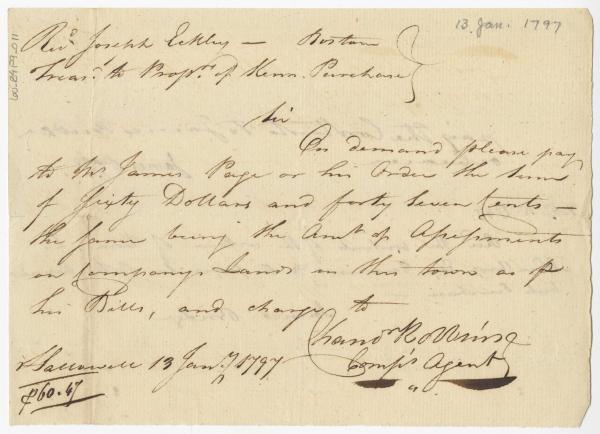 13 Jan. 1797
Revd. Joseph Eckley — Boston
Treasr. to Proprs. of Kenn. Purchase
Sir
On demand please pay
to Mr. James Page or his Order the sum
of Sixty Dollars and forty Seven Cents —
the same being the Amt. of Assessments
on Companys Lands in this town as p
his Bills, and charge to
Chandr. Robbins
Comps. Agent
Hallowell 13 Jany. 1797
$60.47